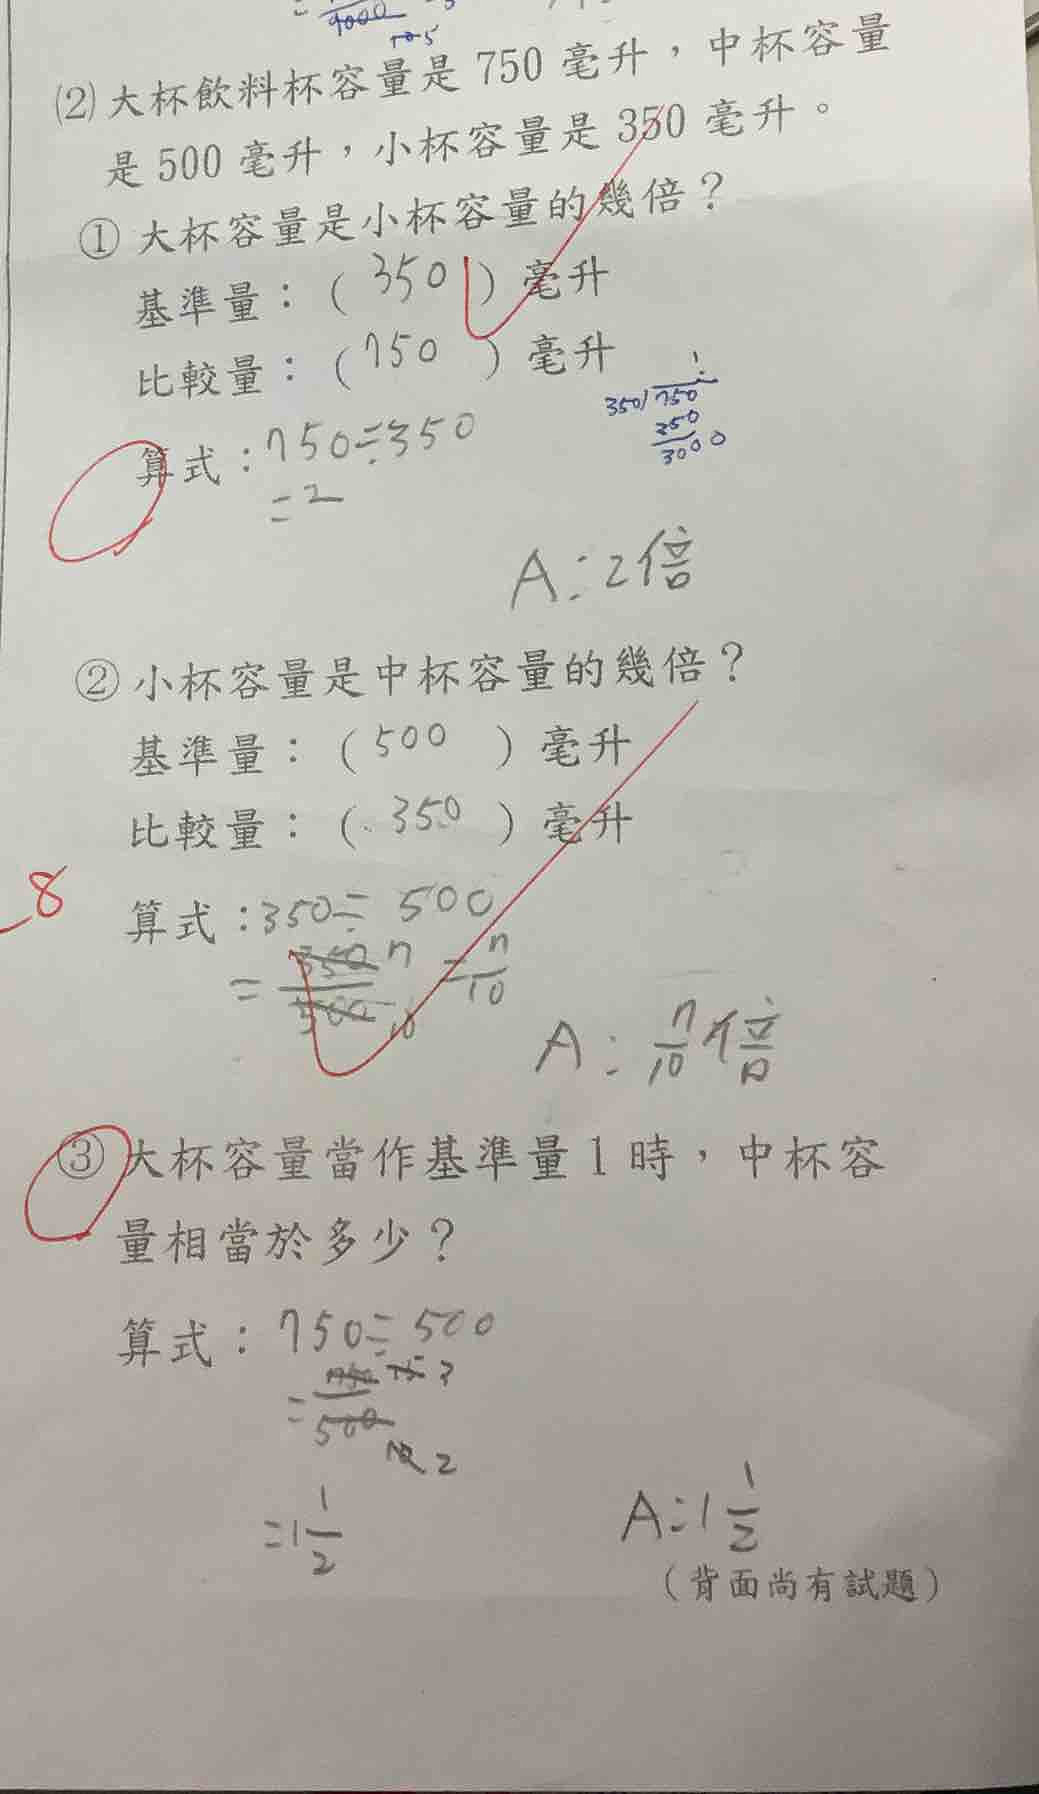 9000
(2) 大杯飲料杯容量是 750 毫升，中杯容量
是 500 毫升，小杯容量是 350 毫升。
① 大杯容量是小杯容量的幾倍？
基準量：（ 350 ）毫升
比較量：（ 750 ）毫升
1
350)750
算式：750÷350
350
3000
=2
A：2倍
② 小杯容量是中杯容量的幾倍？
基準量：（ 500 ）毫升
比較量：（ 350 ）毫升
-8
算式：350÷500
= 350/500 7/10 = 7/10
A：7/10倍
③ 大杯容量當作基準量 1 時，中杯容
量相當於多少？
算式：750÷500
= 750/500 15 3/10 2
=1 1/2
A：1 1/2
（背面尚有試題）